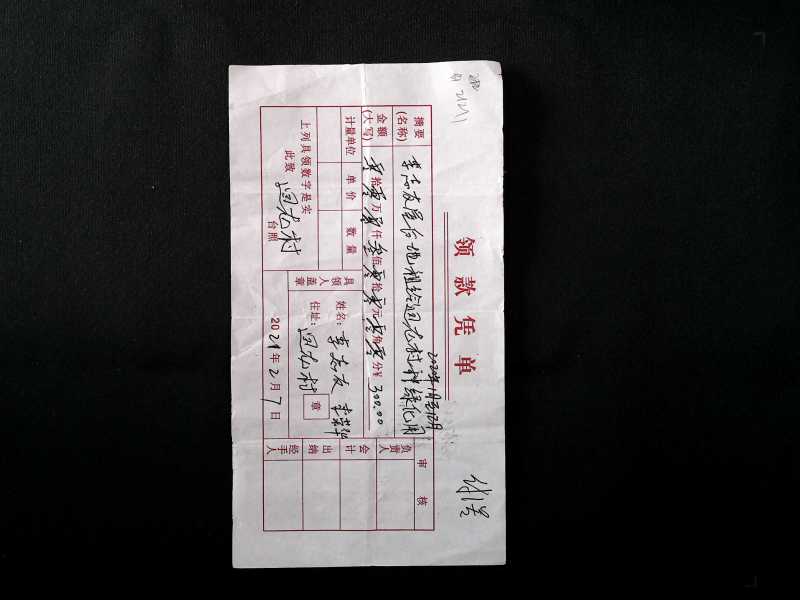 领款凭单
付讫
2020年1月至12月
摘要(名称) 李志友屋后地租给回龙村种绿化用
金额(大写) 零拾零万零仟叁佰零拾零元零角零分¥300.00
计量单位 单价 数量
上列具领数字是实
此致
回龙村 台照
具领人盖章
姓名:李志友
住址:回龙村 章
2021年2月7日
审核
负责人
会计
出纳
经手人